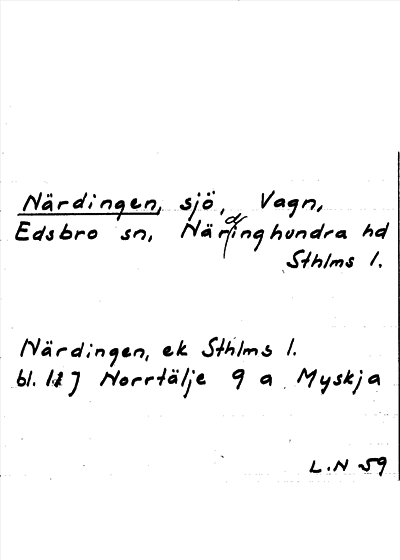 Närdingen, sjö, Vagn,
Edsbro sn, Närdinghundra hd
Sthlms l.
Närdingen, ek Sthlms l.
bl. J Norrtälje 9 a Myskja
L.N 59